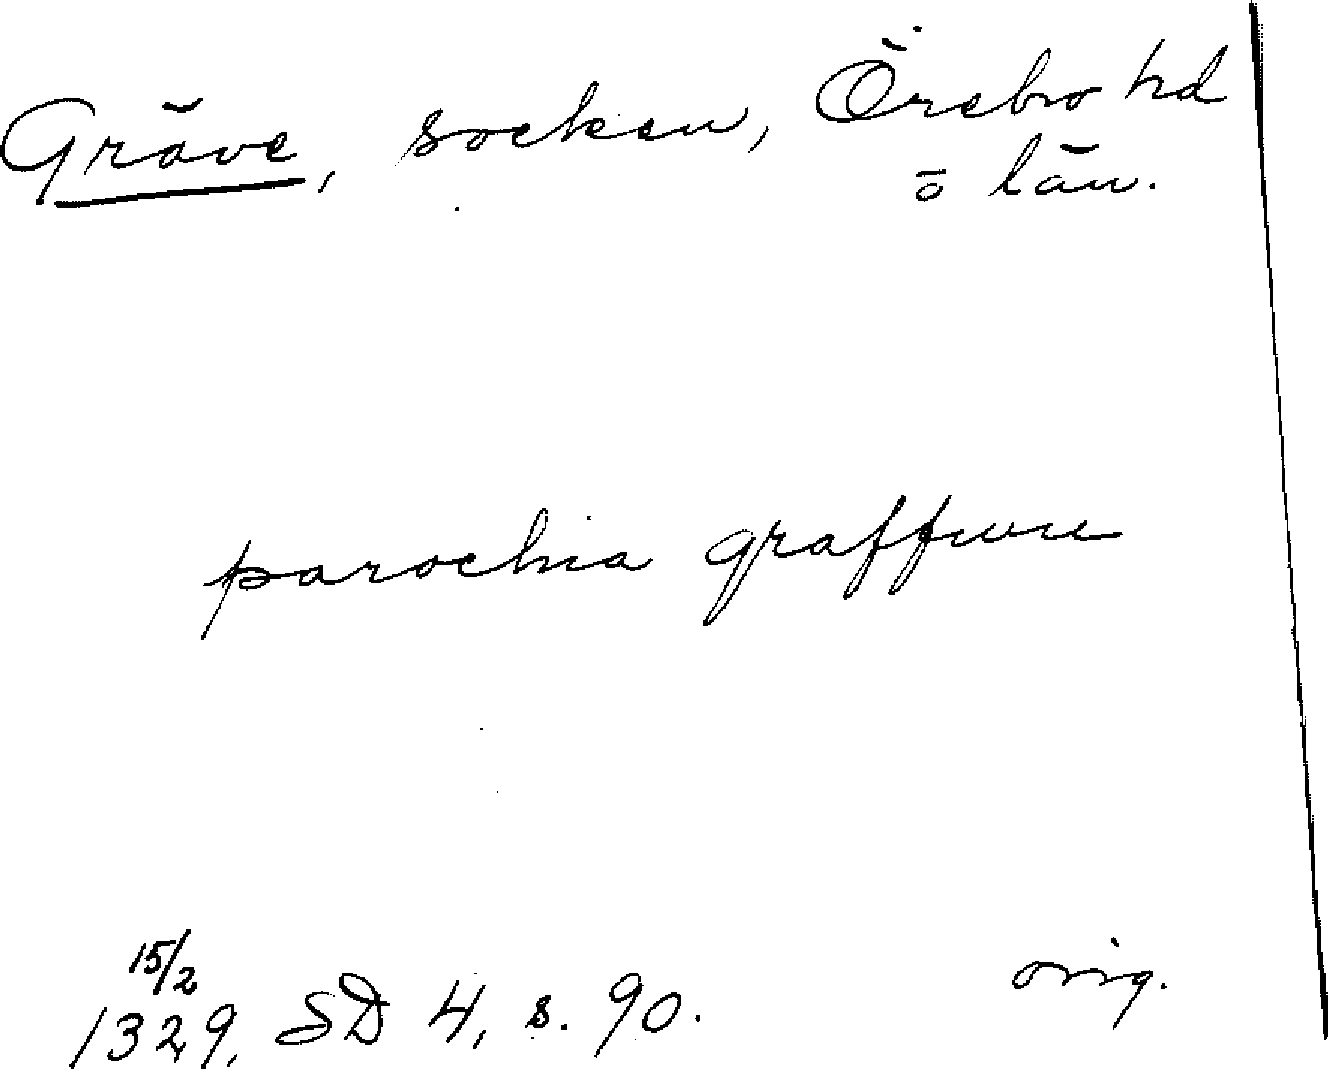 Gräve, socken, Örebro hd
ö län.
parochia graffwu
15/2
1329, SD 4, s. 90. orig.